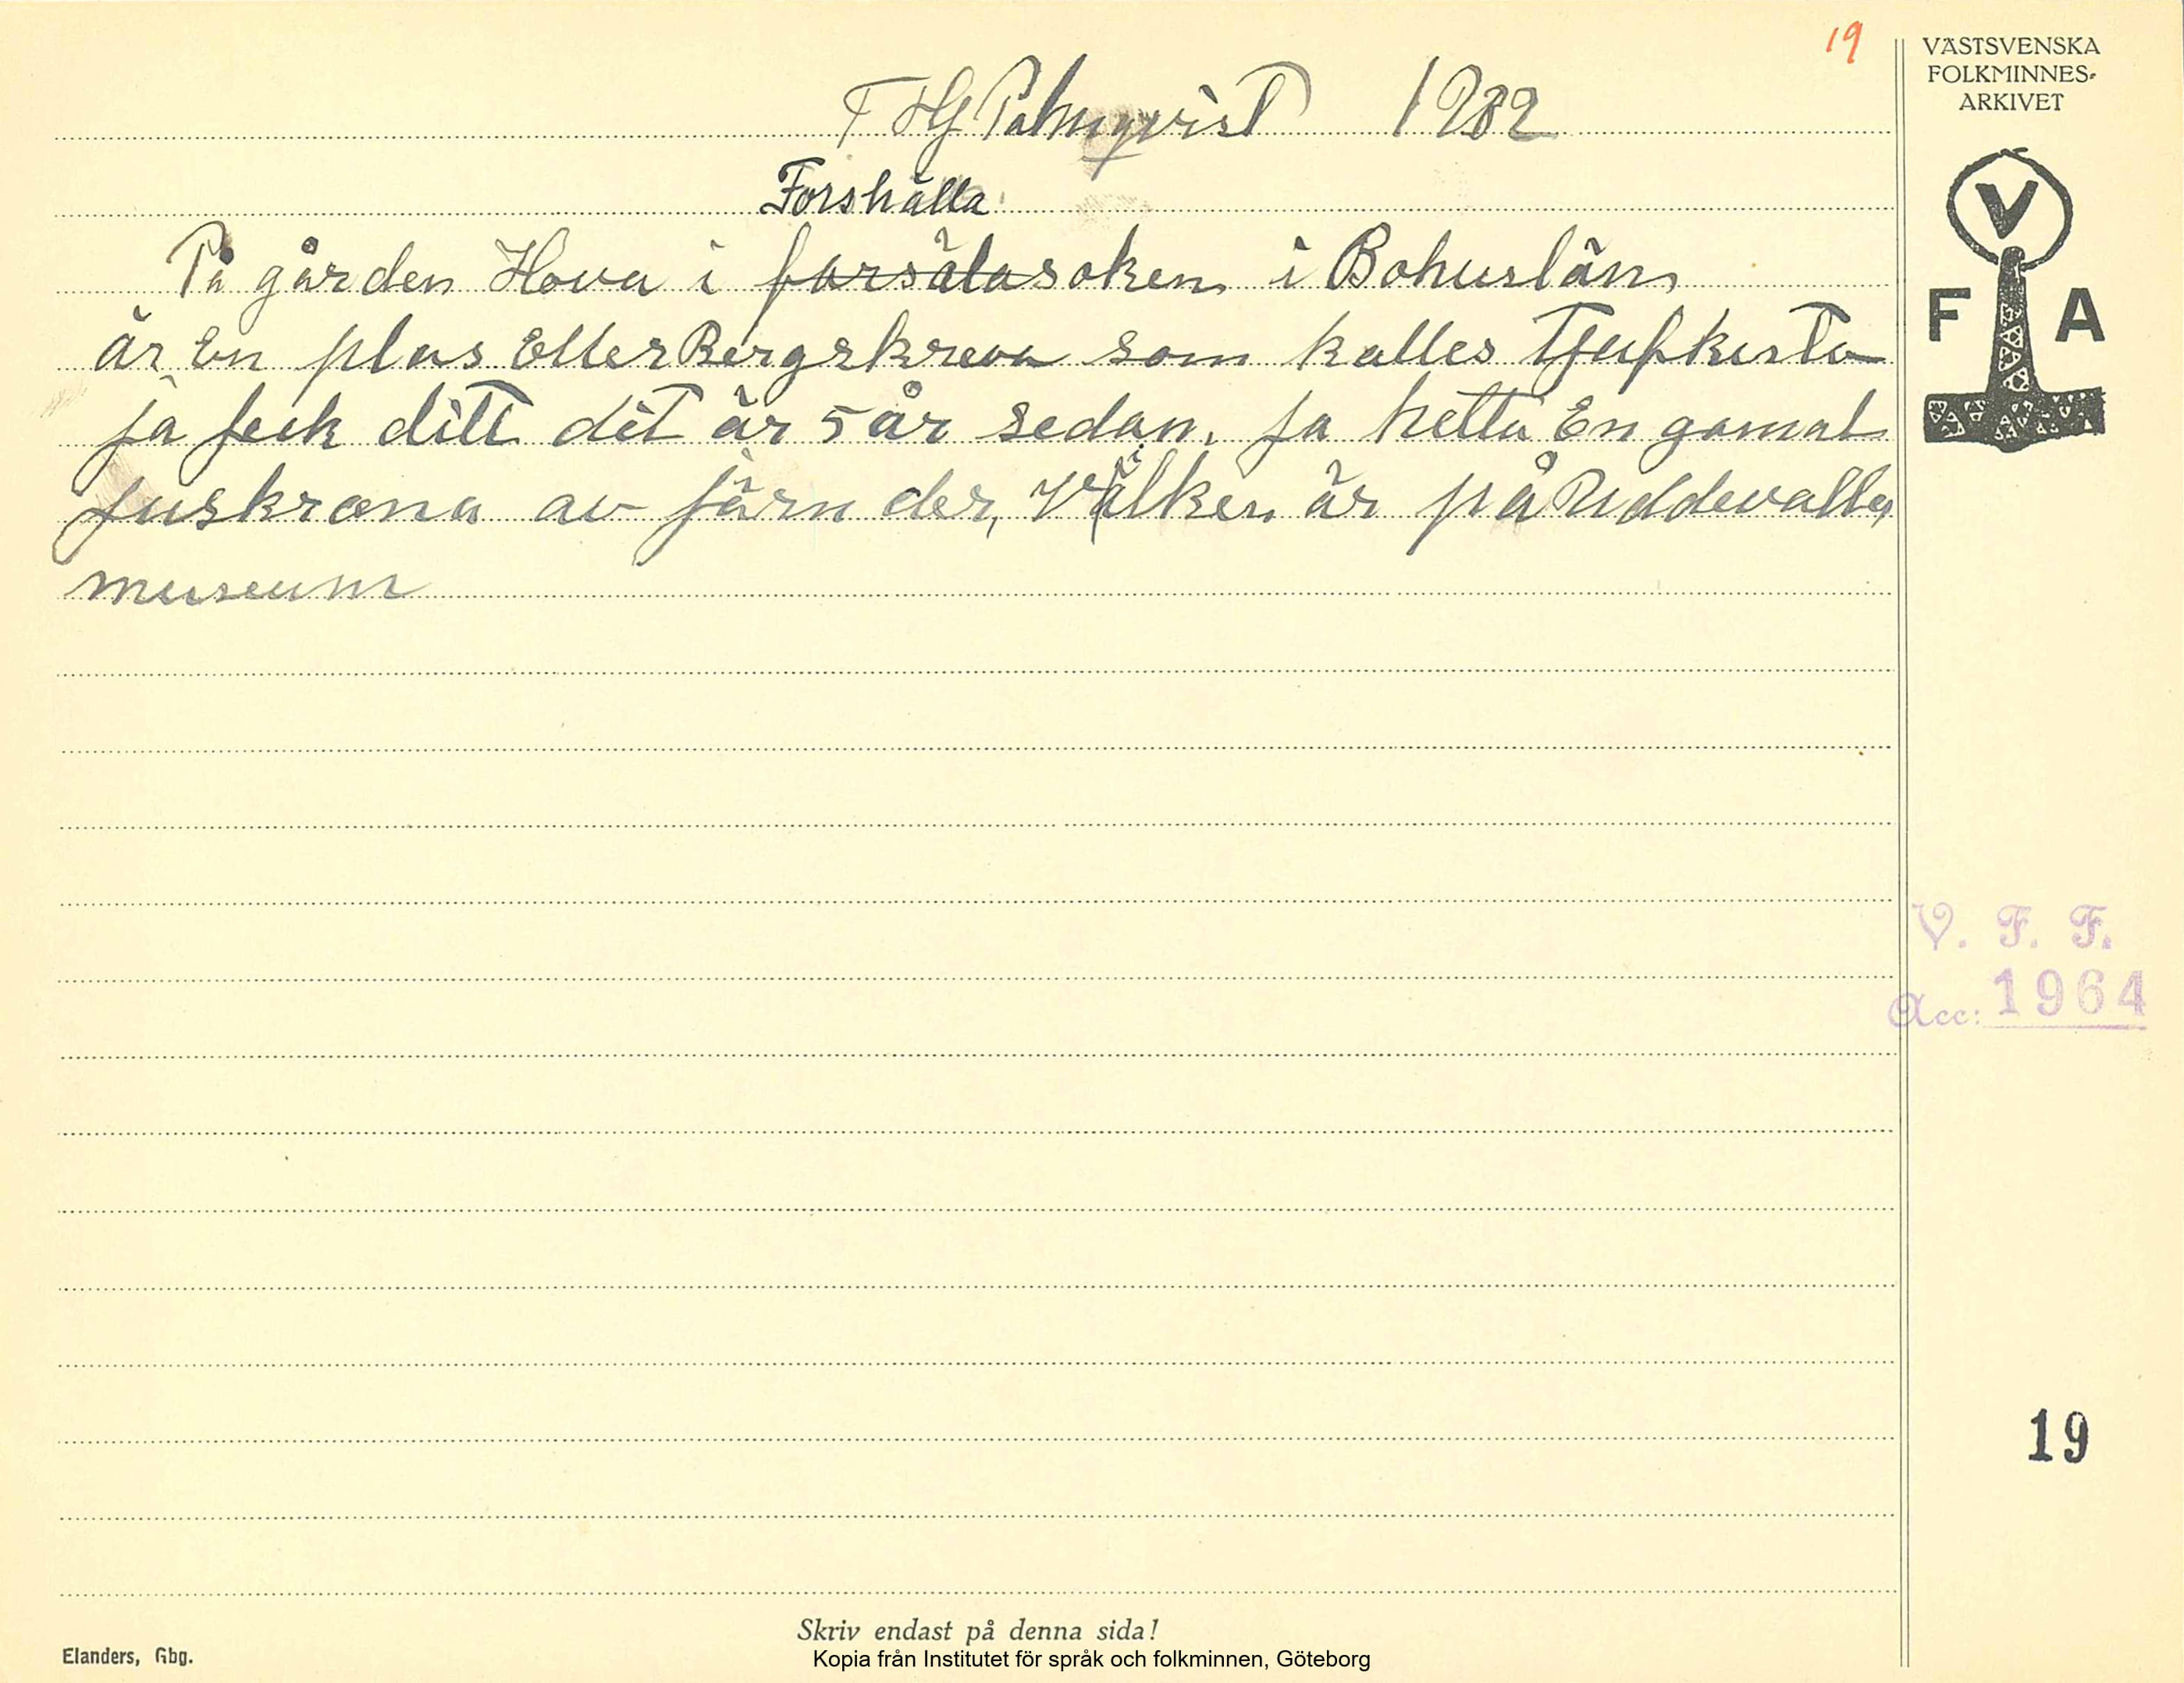 19
VÄSTSVENSKA
FOLKMINNES-
ARKIVET
F HG Palmqvist 1932
Forshälla
På gården Hova i forsäla soken i Bohuslän
är En plas Eller Bergskreva som kalles Tjufkista
ja feck ditt dit är 5 år sedan, ja hetta En gamal
juskrona av järn der, Vilken är på Uddevalla
museum
V
F A
V. F. F.
Acc: 1964
19
Skriv endast på denna sida!
Elanders, Gbg.
Kopia från Institutet för språk och folkminnen, Göteborg